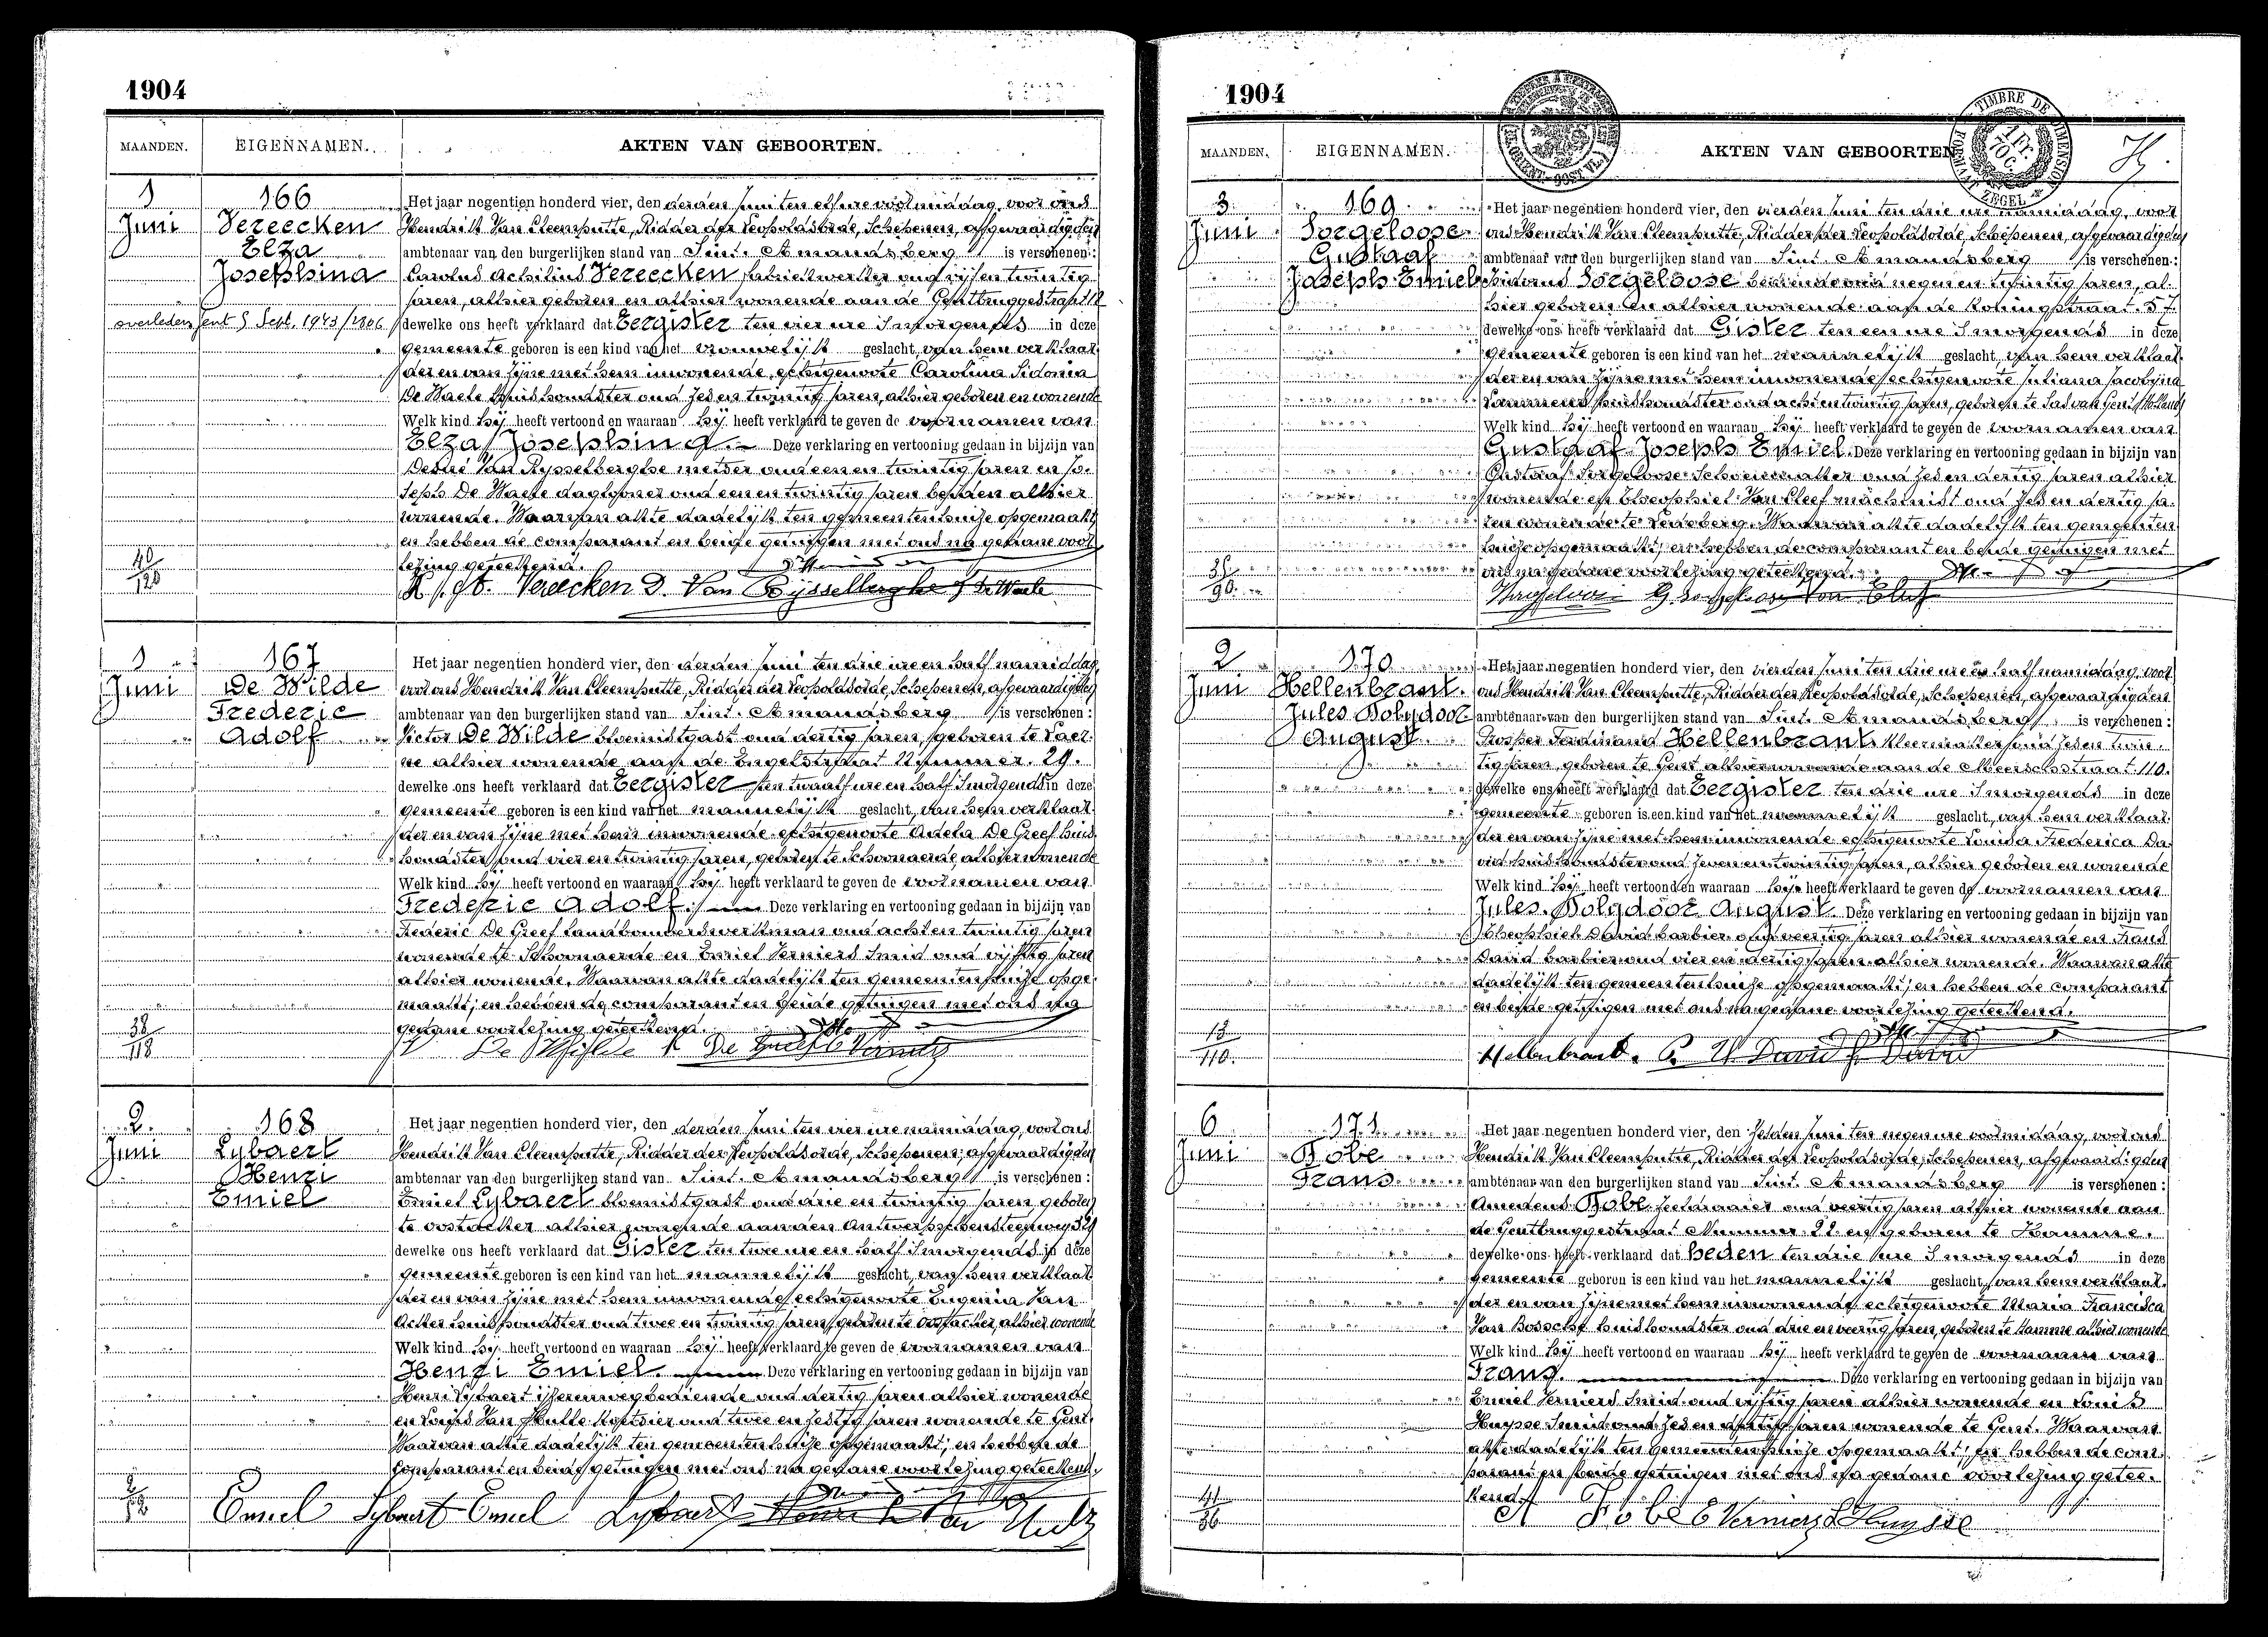 1904
MAANDEN. EIGENNAMEN. AKTEN VAN GEBOORTEN.
1 Juni
166
Vereecken
Elza
Josephina
overleden Gent 9 Sept. 1943/1806
Het jaar negentien honderd vier, den derden Juni ten elf ure voormiddag, voor ons
Hendrik Van Cleemputte, Ridder der Leopoldsorde, Schepenen, afgevaardigden
ambtenaar van den burgerlijken stand van Sint-Amandsberg is verschenen:
Carolus Achilius Vereecken, fabriekwerker oud vijf en twintig
jaren, alhier geboren en alhier wonende aan de Gentbruggestraat 12
dewelke ons heeft verklaard dat Eergister ten vier ure 's morgends in deze
gemeente geboren is een kind van het vrouwelijk geslacht, van hem verklaar-
der en van zijne met hem inwonende echtgenoote Carolina Sidonia
De Waele huishoudster oud zes en twintig jaren, alhier geboren en wonende
Welk kind hij heeft vertoond en waaraan hij heeft verklaard te geven de voornamen van
Elza Josephina. Deze verklaring en vertooning gedaan in bijzijn van
Désiré Van Rysselberghe metser oud een en twintig jaren en Jo-
seph De Waele daglooner oud een en twintig jaren beiden alhier
wonende. Waarvan akte dadelijk ten gemeentenhuize opgemaakt
en hebben de comparant en beide getuigen met ons na gedane voor-
lezing geteekend.
Vereecken D. Van Rysselberghe J. De Waele
40/126
1 Juni
167
De Wilde
Frederic
Adolf
Het jaar negentien honderd vier, den derden Juni ten drie ure en half namiddag,
voor ons Hendrik Van Cleemputte, Ridder der Leopoldsorde, Schepenen, afgevaardigden
ambtenaar van den burgerlijken stand van Sint-Amandsberg is verschenen:
Victor De Wilde bloemistgast oud dertig jaren, geboren te Laer-
ne alhier wonende aan de Engelstraat Nummer 29.
dewelke ons heeft verklaard dat Eergister ten twaalf ure en half 's morgends in deze
gemeente geboren is een kind van het mannelijk geslacht, van hem verklaar-
der en van zijne met hem inwonende echtgenoote Adela De Greef huis-
houdster, oud vier en twintig jaren, geboren te Schoonaerde, alhier wonende
Welk kind hij heeft vertoond en waaraan hij heeft verklaard te geven de voornamen van
Frederic Adolf. Deze verklaring en vertooning gedaan in bijzijn van
Frederic De Greef landbouwerswerkman oud acht en twintig jaren
wonende te Schoonaerde en Emiel Verniers Smid oud vijftig jaren
alhier wonende. Waarvan akte dadelijk ten gemeentenhuize opge-
maakt; en hebben de comparant en beide getuigen met ons na
gedane voorlezing geteekend.
De Wilde De Greef E Verniers
38/118
2 Juni
168
Lybaert
Henri
Emiel
Het jaar negentien honderd vier, den derden Juni ten vier ure namiddag, voor ons
Hendrik Van Cleemputte, Ridder der Leopoldsorde, Schepenen, afgevaardigden
ambtenaar van den burgerlijken stand van Sint-Amandsberg is verschenen:
Emiel Lybaert bloemistgast oud drie en twintig jaren, geboren
te Oostacker alhier wonende aan den Antwerpschensteenweg
dewelke ons heeft verklaard dat Gister ten twee ure en half 's morgends in deze
gemeente geboren is een kind van het mannelijk geslacht, van hem verklaar-
der en van zijne met hem inwonende echtgenoote Eugenia Van
Acker huishoudster oud twee en twintig jaren, geboren te Oostacker, alhier wonende
Welk kind hij heeft vertoond en waaraan hij heeft verklaard te geven de voornamen van
Henri Emiel. Deze verklaring en vertooning gedaan in bijzijn van
Henri Lybaert ijzerenwegbediende oud dertig jaren alhier wonende
en Louis Van Hulle Koetsier oud twee en zestig jaren wonende te Gent.
Waarvan akte dadelijk ten gemeentenhuize opgemaakt; en hebben de
comparant en beide getuigen met ons na gedane voorlezing geteekend.
Emiel Lybaert Emiel Lybaert
1904
MAANDEN. EIGENNAMEN. AKTEN VAN GEBOORTEN
TIMBRE DE DIMENSION
ZEGEL
3 Juni
169
Sorgeloose
Gustaaf
Joseph Emiel
Het jaar negentien honderd vier, den vierden Juni ten drie ure namiddag, voor
ons Hendrik Van Cleemputte, Ridder der Leopoldsorde, Schepenen, afgevaardigden
ambtenaar van den burgerlijken stand van Sint-Amandsberg is verschenen:
Sorgeloose bediende oud negen en twintig jaren, al-
hier geboren en alhier wonende aan de Koningstraat 57.
dewelke ons heeft verklaard dat Gister ten een ure 's morgends in deze
gemeente geboren is een kind van het mannelijk geslacht, van hem verklaar-
der en van zijne met hem inwonende echtgenoote Juliana Jacobina
Lammens huishoudster oud acht en twintig jaren, geboren te Sas van Gent (Holland)
Welk kind hij heeft vertoond en waaraan hij heeft verklaard te geven de voornamen van
Gustaaf Joseph Emiel. Deze verklaring en vertooning gedaan in bijzijn van
Gustaaf Sorgeloose Schoenmaker oud zes en dertig jaren alhier
wonende en Theophiel Van Cleef machinist oud zes en dertig ja-
ren wonende te Ledeberg. Waarvan akte dadelijk ten gemeenten-
huize opgemaakt; en hebben de comparant en beide getuigen met
ons na gedane voorlezing geteekend.
2 Juni
170
Hellenbrant.
Jules Polydoor
August
Het jaar negentien honderd vier, den vierden Juni ten drie ure en half namiddag, voor
ons Hendrik Van Cleemputte, Ridder der Leopoldsorde, Schepenen, afgevaardigden
ambtenaar van den burgerlijken stand van Sint-Amandsberg is verschenen:
Prosper Ferdinand Hellenbrant Kleermaker oud zes en twin-
tig jaren, geboren te Gent alhier wonende aan de Meerschstraat 110.
dewelke ons heeft verklaard dat Eergister ten drie ure 's morgends in deze
gemeente geboren is een kind van het mannelijk geslacht, van hem verklaar-
der en van zijne met hem inwonende echtgenoote Louisa Frederica Da-
vid huishoudster oud zeven en twintig jaren, alhier geboren en wonende
Welk kind hij heeft vertoond en waaraan hij heeft verklaard te geven de voornamen van
Jules Polydoor August. Deze verklaring en vertooning gedaan in bijzijn van
Theophiel David barbier oud veertig jaren alhier wonende en Frans
David barbier oud vier en dertig jaren alhier wonende. Waarvan akte
dadelijk ten gemeentenhuize opgemaakt; en hebben de comparant
en beide getuigen met ons na gedane voorlezing geteekend.
Hellenbrant. David F David
13/110.
6 Juni
171
Robe
Frans
Het jaar negentien honderd vier, den zesden Juni ten negen ure voormiddag, voor ons
Hendrik Van Cleemputte, Ridder der Leopoldsorde, Schepenen, afgevaardigden
ambtenaar van den burgerlijken stand van Sint-Amandsberg is verschenen:
Amedeus Robe oud veertig jaren alhier wonende aan
de Gentbruggestraat Nummer 22 en geboren te Hamme.
dewelke ons heeft verklaard dat Heden ten drie ure 's morgends in deze
gemeente geboren is een kind van het mannelijk geslacht, van hem verklaar-
der en van zijne met hem inwonende echtgenoote Maria Francisca
Van Bossche huishoudster oud drie en veertig jaren, geboren te Hamme alhier wonende
Welk kind hij heeft vertoond en waaraan hij heeft verklaard te geven de voornaam van
Frans. Deze verklaring en vertooning gedaan in bijzijn van
Emiel Verniers Smid oud vijftig jaren alhier wonende en Louis
Huysse Smid oud zes en jaren wonende te Gent. Waarvan
akte dadelijk ten gemeentenhuize opgemaakt; en hebben de com-
parant en beide getuigen met ons na gedane voorlezing getee-
kend.
A Robe E Verniers L Huysse